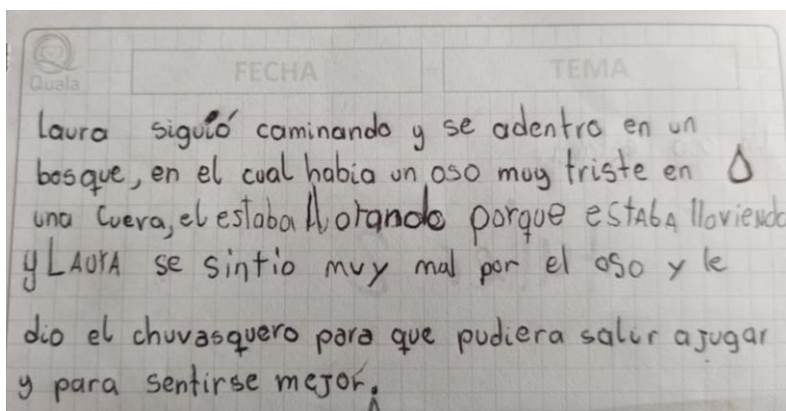 Quala
FECHA
TEMA
Laura siguió caminando y se adentro en un
bosque, en el cual habia un oso muy triste en
una cueva, el estaba llorando porque estAbA lloviendo
y LAurA se sintio muy mal por el oso y le
dio el chuvasquero para que pudiera salir a jugar
y para sentirse mejor.